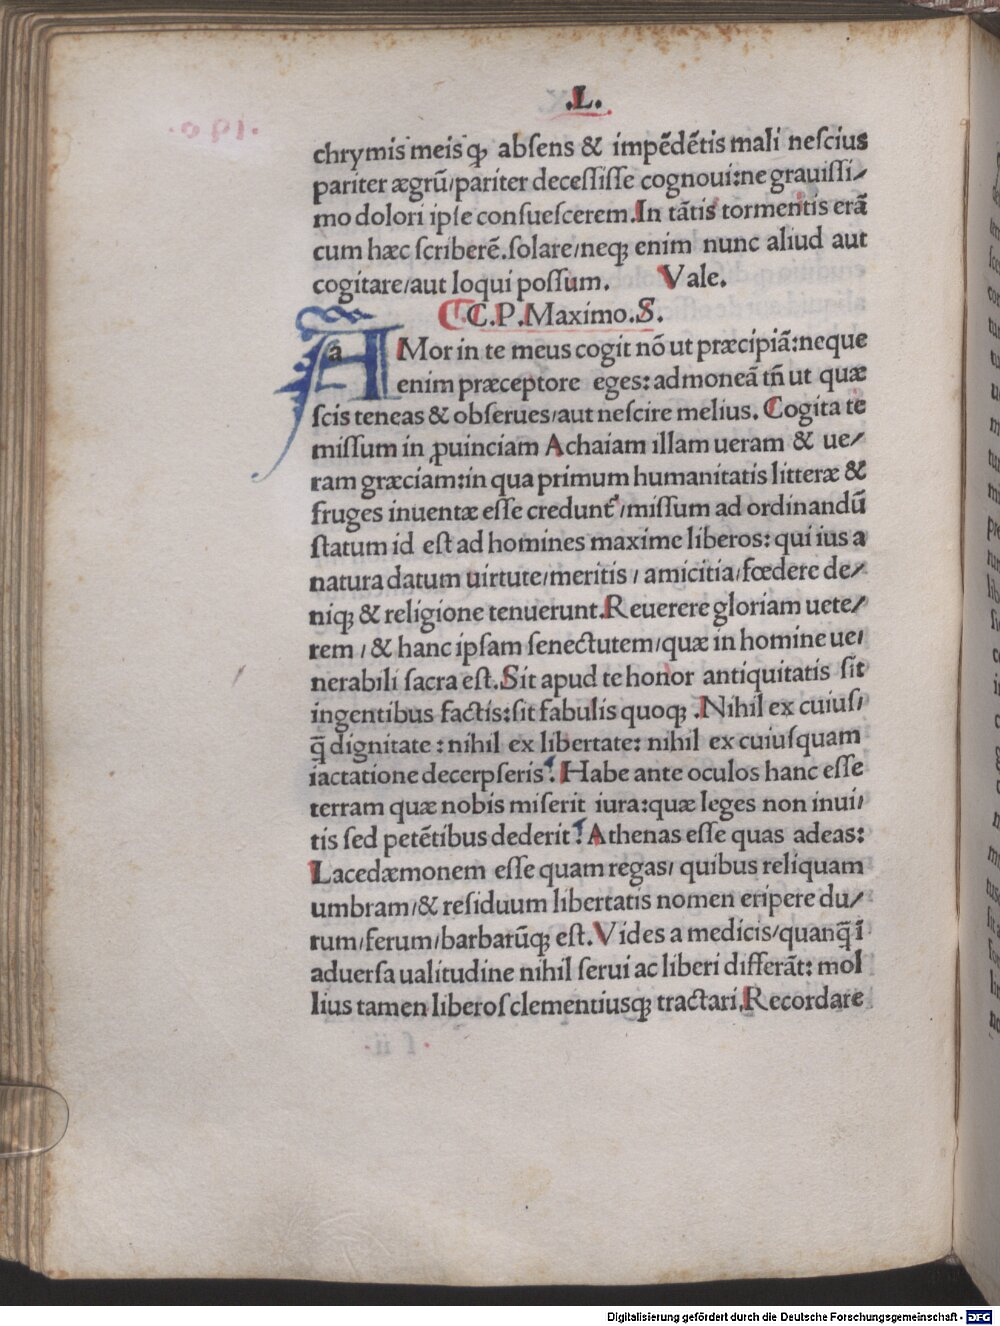 .L.
chrymis meis qꝫ absens & impēdētis mali nescius
pariter ægrū/pariter decessisse cognoui:ne grauissi/
mo dolori ipse consuescerem.In tātis tormentis erā
cum hæc scriberē.solare/neqꝫ enim nunc aliud aut
cogitare/aut loqui possum. Vale.
C.P.Maximo.S.
a AMor in te meus cogit nō ut præcipiā:neque
enim præceptore eges:admoneā tñ ut quæ
scis teneas & obserues/aut nescire melius. Cogita te
missum in ꝓuinciam Achaiam illam ueram & ue/
ram græciam:in qua primum humanitatis litteræ &
fruges inuentæ esse creduntᷣ/missum ad ordinandū
statum id est ad homines maxime liberos:qui ius a
natura datum uirtute/meritis / amicitia/fœdere de/
niqꝫ & religione tenuerunt.Reuerere gloriam uete/
rem / & hanc ipsam senectutem/quæ in homine ue/
nerabili sacra est.Sit apud te honor antiquitatis sit
ingentibus factis:sit fabulis quoqꝫ .Nihil ex cuius/
q̄ dignitate : nihil ex libertate: nihil ex cuiusquam
iactatione decerpseris. Habe ante oculos hanc esse
terram quæ nobis miserit iura:quæ leges non inui/
tis sed petētibus dederit. Athenas esse quas adeas:
Lacedæmonem esse quam regas/ quibus reliquam
umbram/& residuum libertatis nomen eripere du/
rum/ferum/barbarūqꝫ est.Vides a medicis/quanq̄ ī
aduersa ualitudine nihil serui ac liberi differāt: mol
lius tamen liberos clementiusqꝫ tractari.Recordare
Digitalisierung gefördert durch die Deutsche Forschungsgemeinschaft - DFG